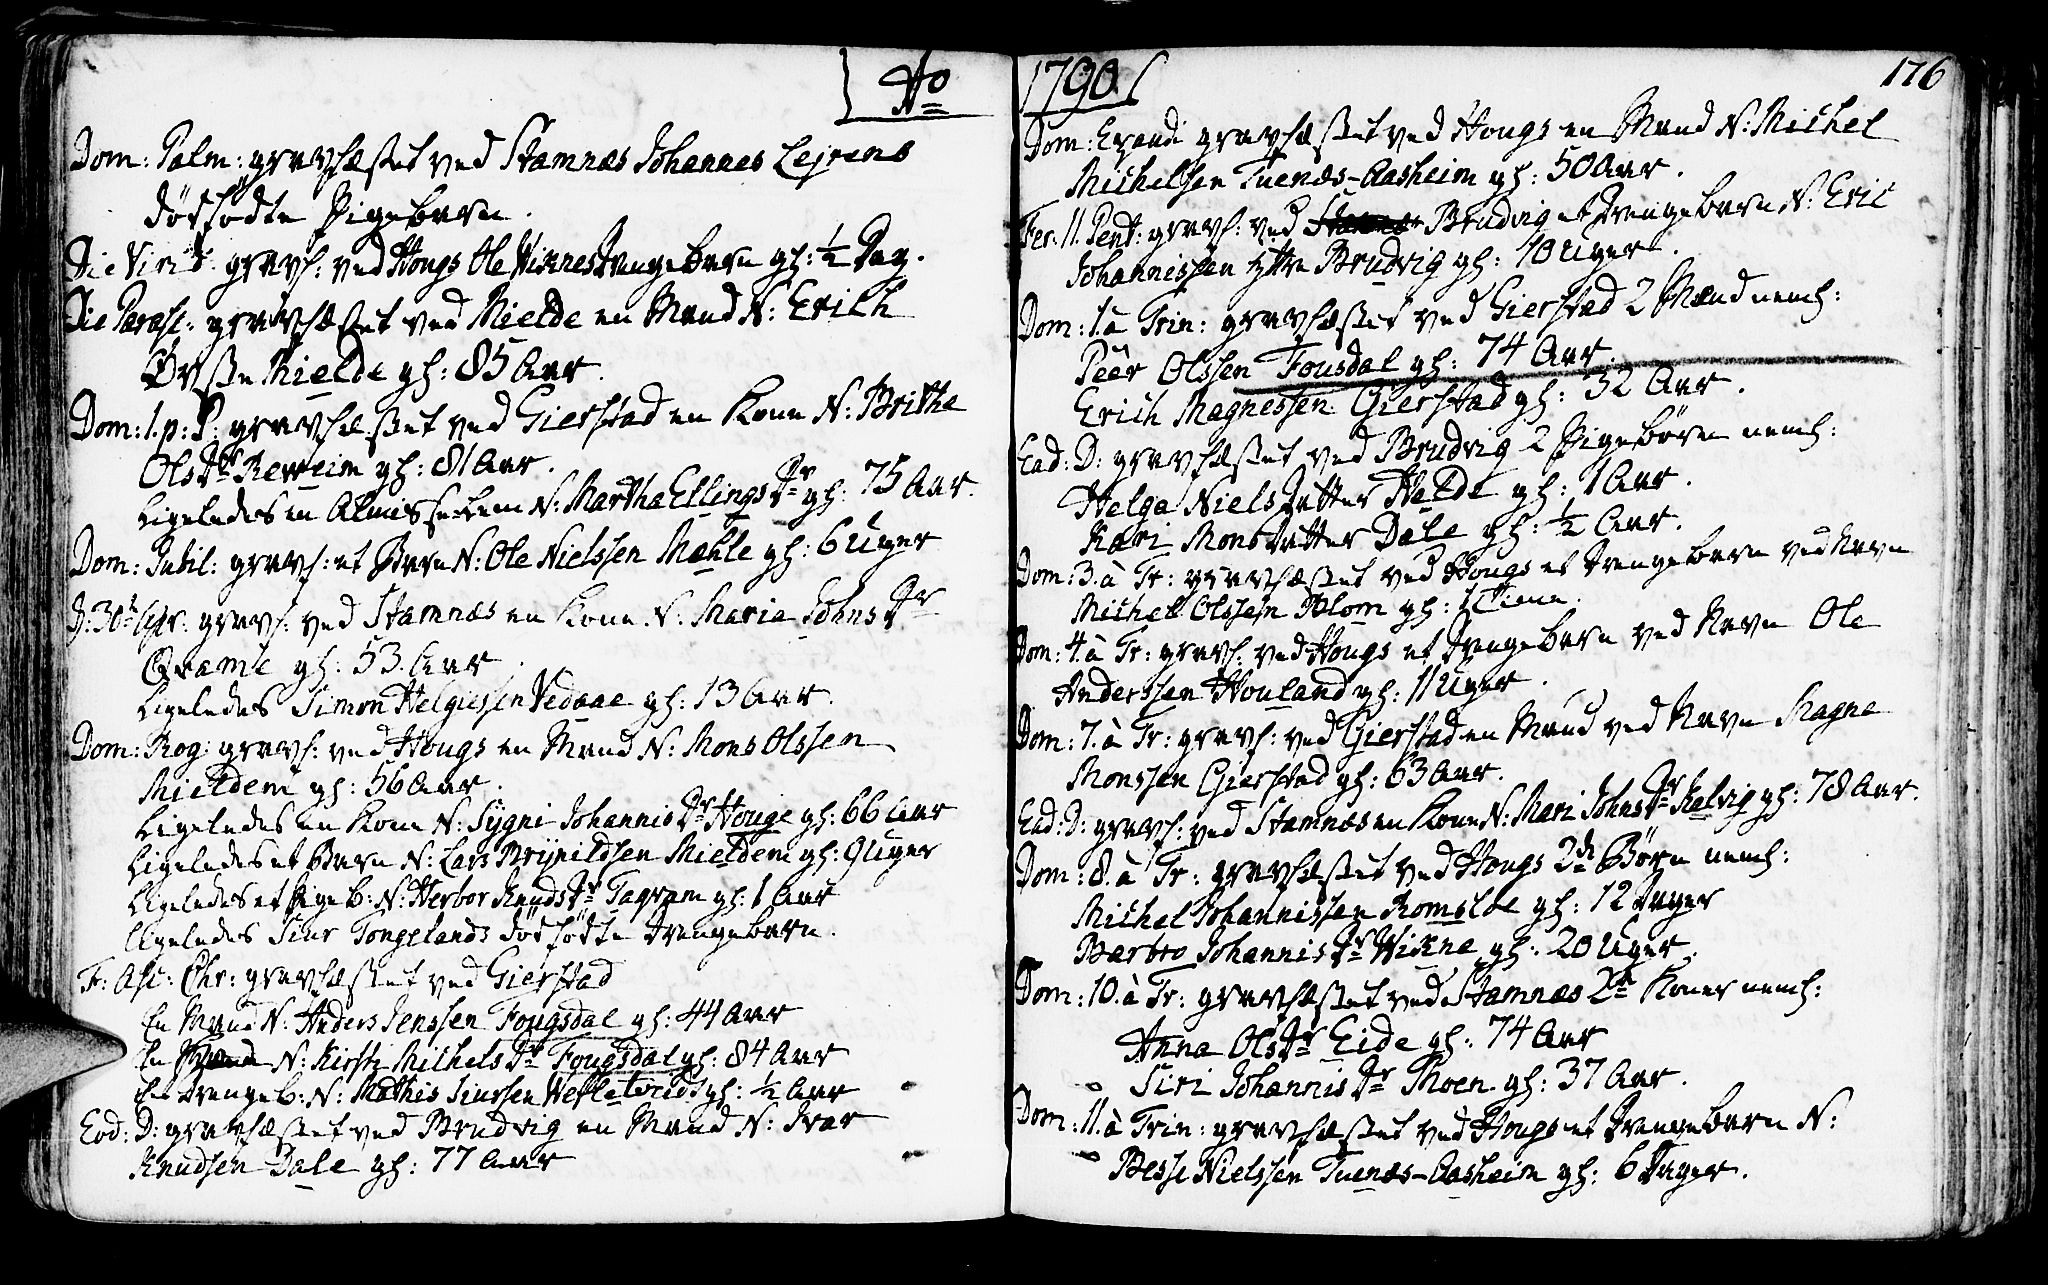 Ao
Dom: Palm: gravfæstet ved Stamnæs Johannes Lejrens
dødfødte Pigebarn.
Die Virid: gravf: ved Hougs Ole Wiknes Drengebarn gl: ½ Dag.
Die Parasc: gravfæstet ved Mielde en Mand N: Erich
Mielde gl: 85 Aar.
Dom: 1. p: P: gravfæstet ved Gierstad en Kone N: Brithe
Olsdr Reweim gl: 81 Aar.
Ligeledes en Almisselem N: Martha Ellingsdr gl: 75 Aar.
Dom: Jubil: gravf: et Barn N: Ole Nielssen Mæhle gl: 6 Uger
D: 30te Apr. gravf: ved Stamnæs en Kone N: Maria Johnsdr
Qvamle gl: 53 Aar
Ligeledes Simon Helgiessen Vedaae gl: 13 Aar.
Dom: Rog: gravf: ved Hougs en Mand N: Mons Olssen
Mieldem gl: 56 Aar.
Ligeledes en Kone N: Sygni Johannisdr Houge gl: 66 Aar
Ligeledes et Barn N: Lars Brynildsen Mieldem gl: 9 Uger
Ligeledes et Pigeb: N: Herbor Knudsdr Fagram gl: 1 Aar
Ligeledes Siur Tongelands dødfødte Drengebarn.
F: Asc: Chr: gravfæstet ved Gierstad
En Mand N: Anders Jenssen Fougsdal gl: 44 Aar
En N: Kirsti Michelsdr Fougsdal gl: 84 Aar
Et Drengeb: N: Mathis Siursen gl: ½ Aar
Eod: D: gravfæstet ved Brudvig en Mand N: Ivar
Knudsen Dale gl: 77 Aar
1790
176
Dom: Exaudi gravfæstet ved Hougs en Mand N: Michel
Michelsen Tuenæs-Aasheim gl: 50 Aar.
Fer. 11. Pent: gravf: ved Brudvig et Drengebarn N: Eric
Johannissen Brudvig gl: 10 Uger.
Dom: 1. à Trin: gravfæstet ved Gierstad 2 Mænd neml:
Peer Olssen Fousdal gl: 74 Aar.
Erich Magnessen Gierstad gl: 32 Aar.
Ead: D: gravfæstet ved Brudvig 2 Pigebørn neml:
Helga Nielsdatter Hælde gl: 1 Aar.
Kari Monsdatter Dale gl: ½ Aar.
Dom: 3. à Tr: gravfæstet ved Hougs et Drengebarn ved Navn
Michel Olssen Blom gl: 1 Time.
Dom: 4. à Tr: gravf: ved Hougs et Drengebarn ved Navn Ole
Anderssen Houland gl: 11 Uger.
Dom: 7. à Tr: gravf: ved Gierstad en Mand ved Navn Magne
Monssen Gierstad gl: 63 Aar.
Ead: D: gravf: ved Stamnæs en Kone N: Mari Johnsdr Kalvig gl: 78 Aar.
Dom: 8. à Tr: gravfæstet ved Hougs 2de Børn neml:
Michel Johannissen Romsloe gl: 12 Dager
Barbro Johannisdr Wikne gl: 20 Uger.
Dom: 10. à Tr: gravfæstet ved Stamnæs 2de Koner neml:
Anna Olsdr Eide gl: 74 Aar
Siri Johannisdr Moen gl: 37 Aar.
Dom: 11. à Trin: gravfæstet ved Hougs et Drengebarn N:
Besse Nielssen Tuenæs-Aasheim gl: 6 Dager.